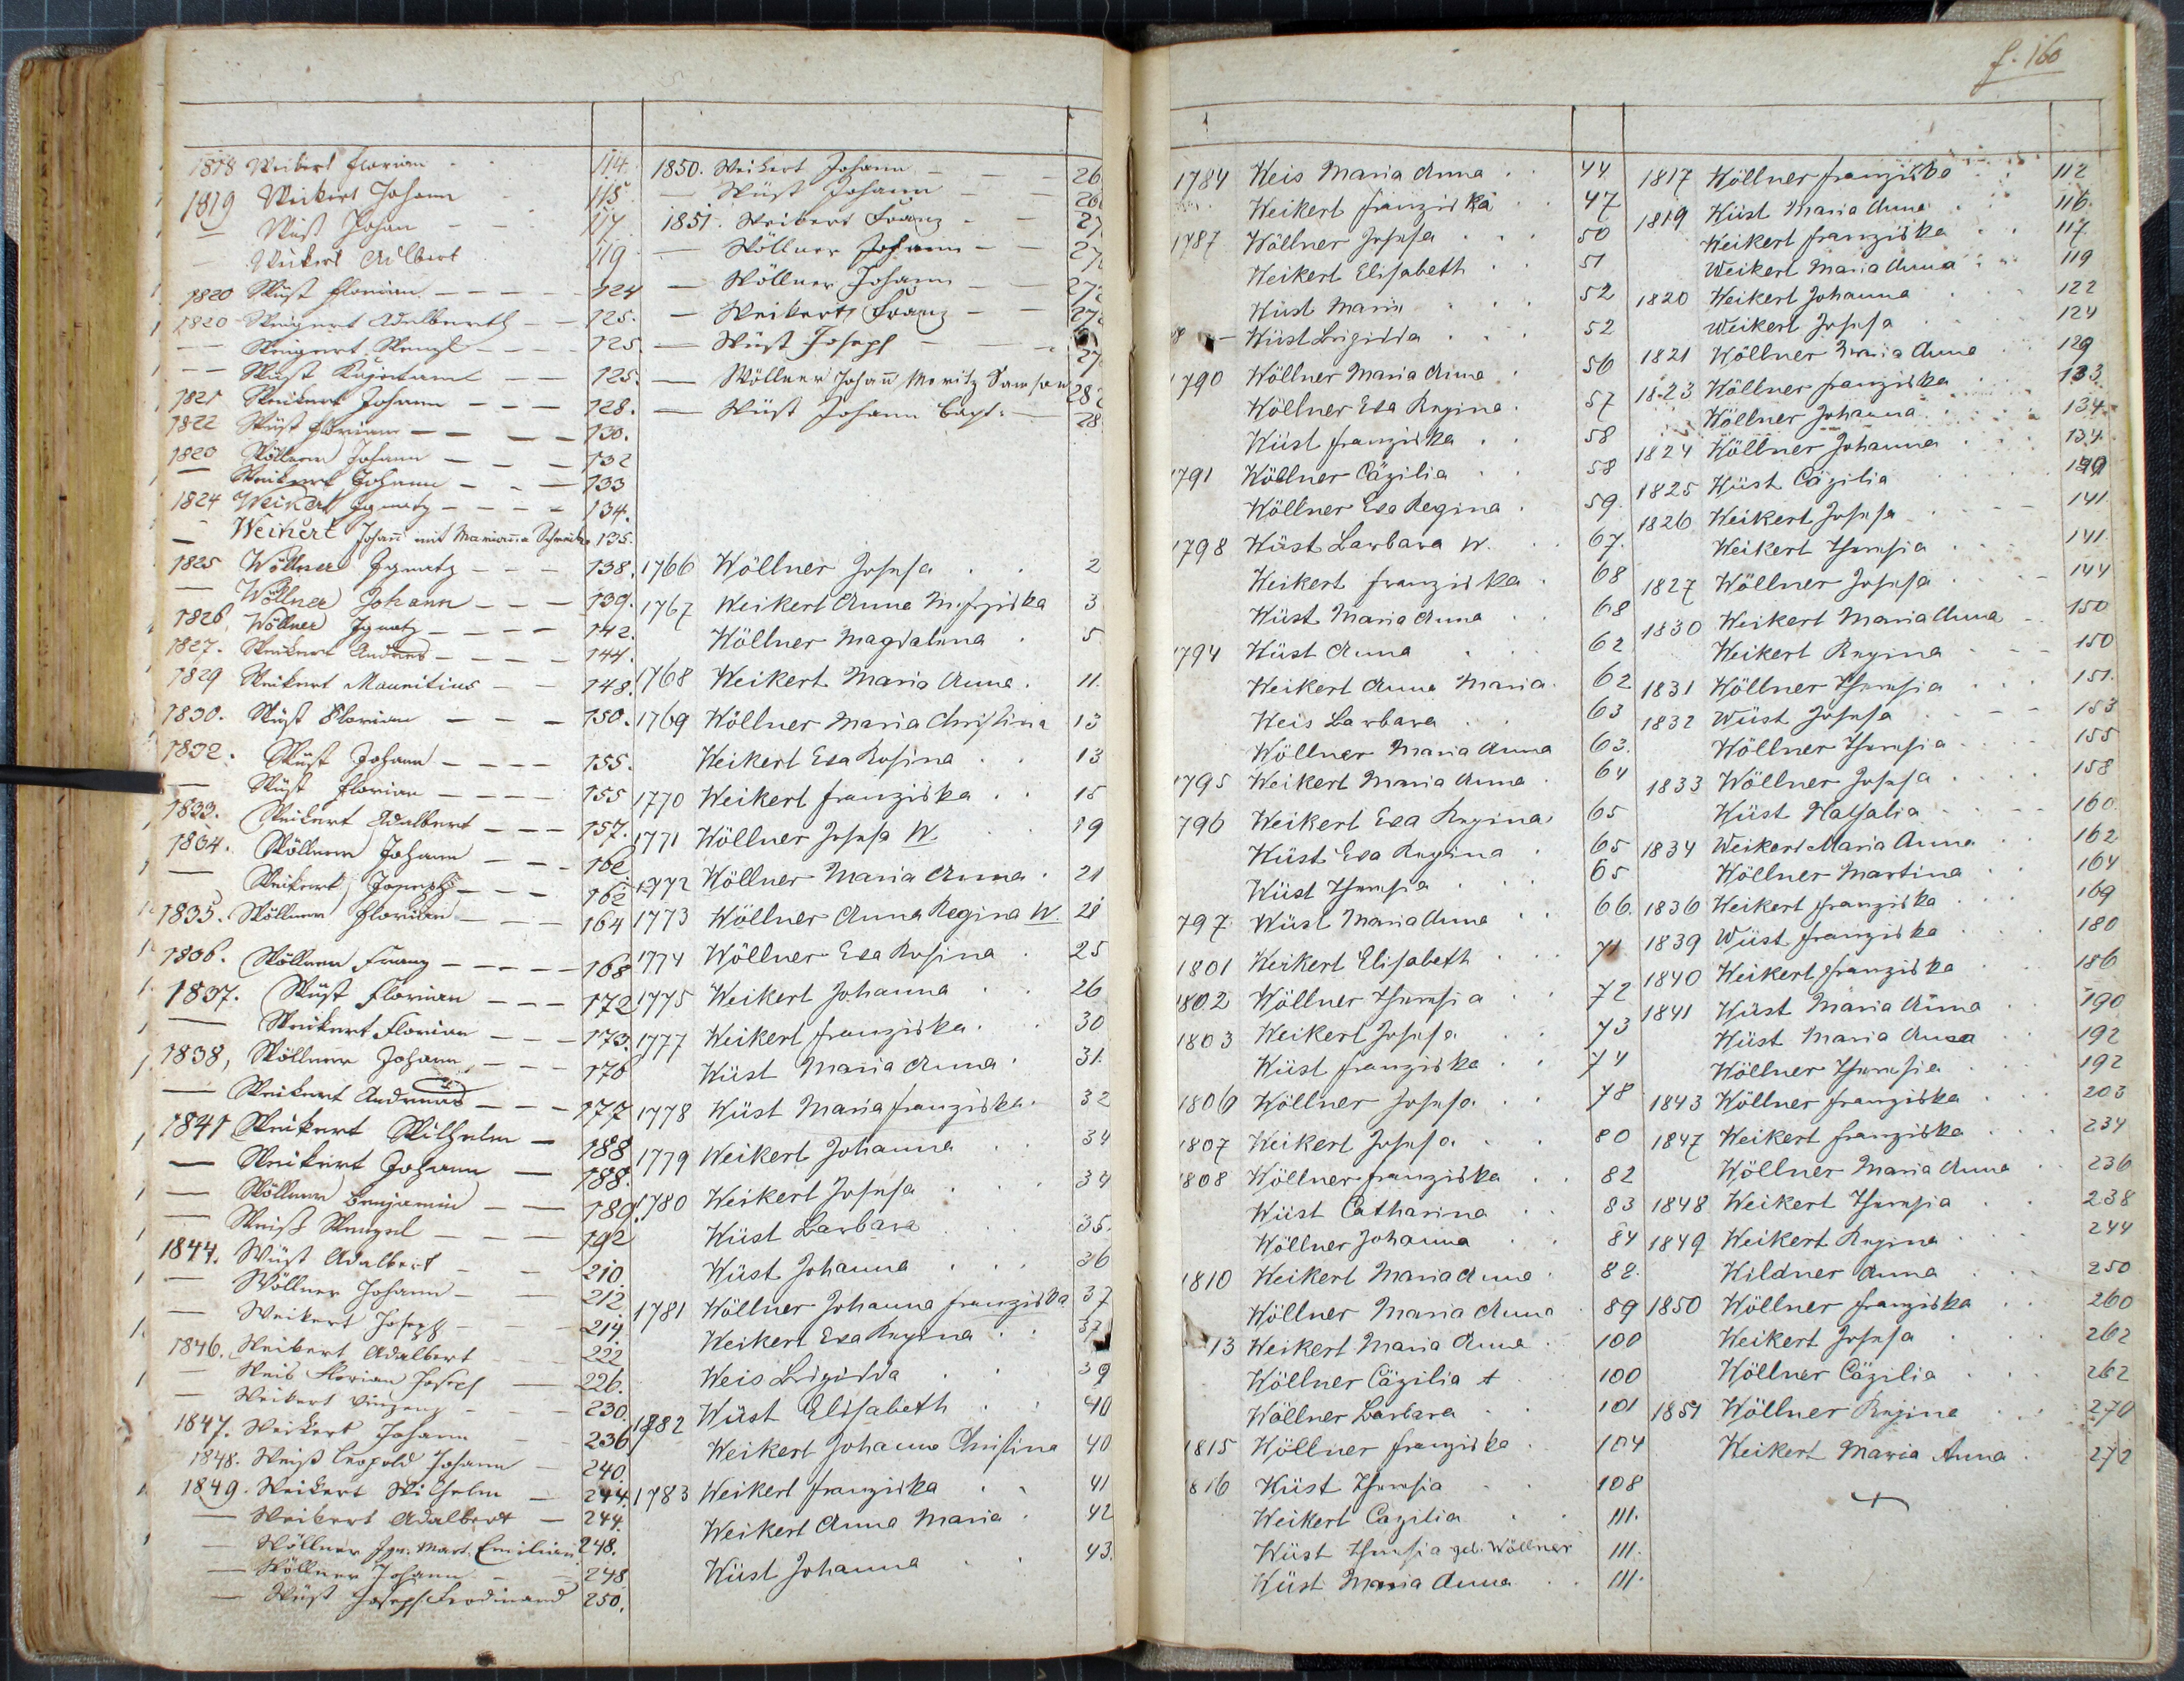 f. 160
1818 Weikert Florian 114.
1819 Weikert Johann 115
— Wüst Johan 117
— Weikert Adlbert 119
1820 Wüst Florian 124
1820 Weigert Adalberth 125.
— Weigert Wenzl 125
— Wüst 125.
1821 Weikert Johann 128.
1822 Wüst Florian 130.
1823 Wöllner Johann 132
— Weikert Johann 133
1824 Weikert Ignatz 134.
— Weikert Johan̄ mit Marian̄a 135.
1825 Wöllner Ignatz 138.
— Wöllner Johann 139.
1826 Wöllner Ignatz 142.
1827. Weikert Andreas 144.
1829 Weikert Mauritius 148.
1830. Wüst Florian 150.
1832. Wüst Johann 155.
— Wüst Florian 155
1833. Weikert Adalbert 157.
1834. Wöllner Johann 162
— Weikert Joseph 162
1835. Wöllner Florian 164
1836. Wöllner Franz 168
1837. Wüst Florian 172
— Weikert Florian 173.
1838, Wöllner Johann 176
— Weikert Andreas 177
1841 Weikert Wilhelm 188
— Weikert Johann 188.
— Wöllner Benjamin 189.
— Weiß Wenzel 192
1844. Wüst Adalbert 210.
— Wöllner Johann 212.
— Weikert Joseph 214.
1846. Weikert Adalbert 222
— Weis Florian Joseph 226.
— Weikert Vinzenz 230.
1847. Weikert Johann 236
1848. Weiß Leopold Johann 240.
1849. Weikert Wilhelm 244.
— Weikert Adalbert 244.
— Wöllner Ign. Mart. Emilian 248.
— Wöllner Johann 248
— Wüst Joseph Ferdinand 250.
1850. Weikert Johann 26
— Wüst Johann 26
1851. Weikert Franz 27
— Wöllner Johann 27
— Wöllner Johann 27
— Weikert Franz 27
— Wüst Joseph 27
— Wöllner Johan̄ Moritz Samson 28
— Wüst Johann Bapt. 28
1766 Wöllner Josefa 2
1767 Weikert Anna M. Frziska 3
Wöllner Magdalena 5
1768 Weikert Maria Anna 11.
1769 Wöllner Maria Christina 13
Weikert Eva Rosina 13
1770 Weikert Franziska 15
1771 Wöllner Josefa W. 19
1772 Wöllner Maria Anna 21
1773 Wöllner Anna Regina W. 21
1774 Wöllner Eva Rosina 25
1775 Weikert Johanna 26
1777 Weikert Franziska 30
Wüst Maria Anna 31.
1778 Wüst Maria Franziska 32
1779 Weikert Johanna 34
1780 Weikert Josefa 34
Wüst Barbara 35.
Wüst Johanna 36
1781 Wöllner Johanna Franziska 37
Weikert Eva Regina 37
Weis Brigidda 39
1782 Wüst Elisabeth 40
Weikert Johanna Christina 40
1783 Weikert Franziska 41
Weikert Anna Maria 42
Wüst Johanna 43.
1784 Weis Maria Anna 44
Weikert Franziska 47
1787 Wöllner Josefa 50
Weikert Elisabeth 51
Wüst Maria 52
Wüst Brigidda 52
1790 Wöllner Maria Anna 56
Wöllner Eva Regina 57
Wüst Franziska 58
1791 Wöllner Cäzilia 58
Wöllner Eva Regina 59
1798 Wüst Barbara W. 67.
Weikert Franziska 68
Wüst Maria Anna 68
1794 Wüst Anna 62
Weikert Anna Maria 62
Weis Barbara 63
Wöllner Maria Anna 63.
1795 Weikert Maria Anna 64
796 Weikert Eva Regina 65
Wüst Eva Regina 65
Wüst Theresia 65
797 Wüst Maria Anna 66.
1801 Weikert Elisabeth 71
1802 Wöllner Theresia 72
1803 Weikert Josefa 73
Wüst Franziska 74
1806 Wöllner Josefa 78
1807 Weikert Josefa 80
1808 Wöllner Franziska 82
Wüst Catharina 83
Wöllner Johanna 84
1810 Weikert Maria Anna 88.
Wöllner Maria Anna 89
13 Weikert Maria Anna 100
Wöllner Cäzilia t 100
Wöllner Barbara 101
1815 Wöllner Franziska 104
1816 Wüst Theresia 108
Weikert Cazilia 111.
Wüst Theresia geb. Wöllner 111.
Wüst Maria Anna 111.
1817 Wöllner Franziska 112
1819 Wüst Maria Anna 116.
Weikert Franziska 117
Weikert Maria Anna 119
1820 Weikert Johanna 122
Weikert Josefa 124
1821 Wöllner Maria Anna 129
1823 Wöllner Franziska 133
Wöllner Johanna 134
1824 Wöllner Johanna 134
1825 Wüst Cäzilia
1826 Weikert Josefa 141
Weikert Theresia 141
1827 Wöllner Josefa 144
1830 Weikert Maria Anna 150
Weikert Regina 150
1831 Wöllner Theresia 151.
1832 Wüst Josefa 153
Wöllner Theresia 155
1833 Wöllner Josefa 158
Wüst Nathalia 160.
1834 Weikert Maria Anna 162
Wöllner Martina 164
1836 Weikert Franziska 169
1839 Wüst Franziska 180
1840 Weikert Franziska 186
1841 Wüst Maria Anna 190
Wüst Maria Anna 192
Wöllner Theresia 192
1843 Wöllner Franziska 203
1847 Weikert Franziska 234
Wöllner Maria Anna 236
1848 Weikert Theresia 238
1849 Weikert Regina 244
Wildner Anna 250
1850 Wöllner Franziska 260
Weikert Josefa 262
Wöllner Cäzilia 262
1851 Wöllner Regina 270
Weikert Maria Anna 272